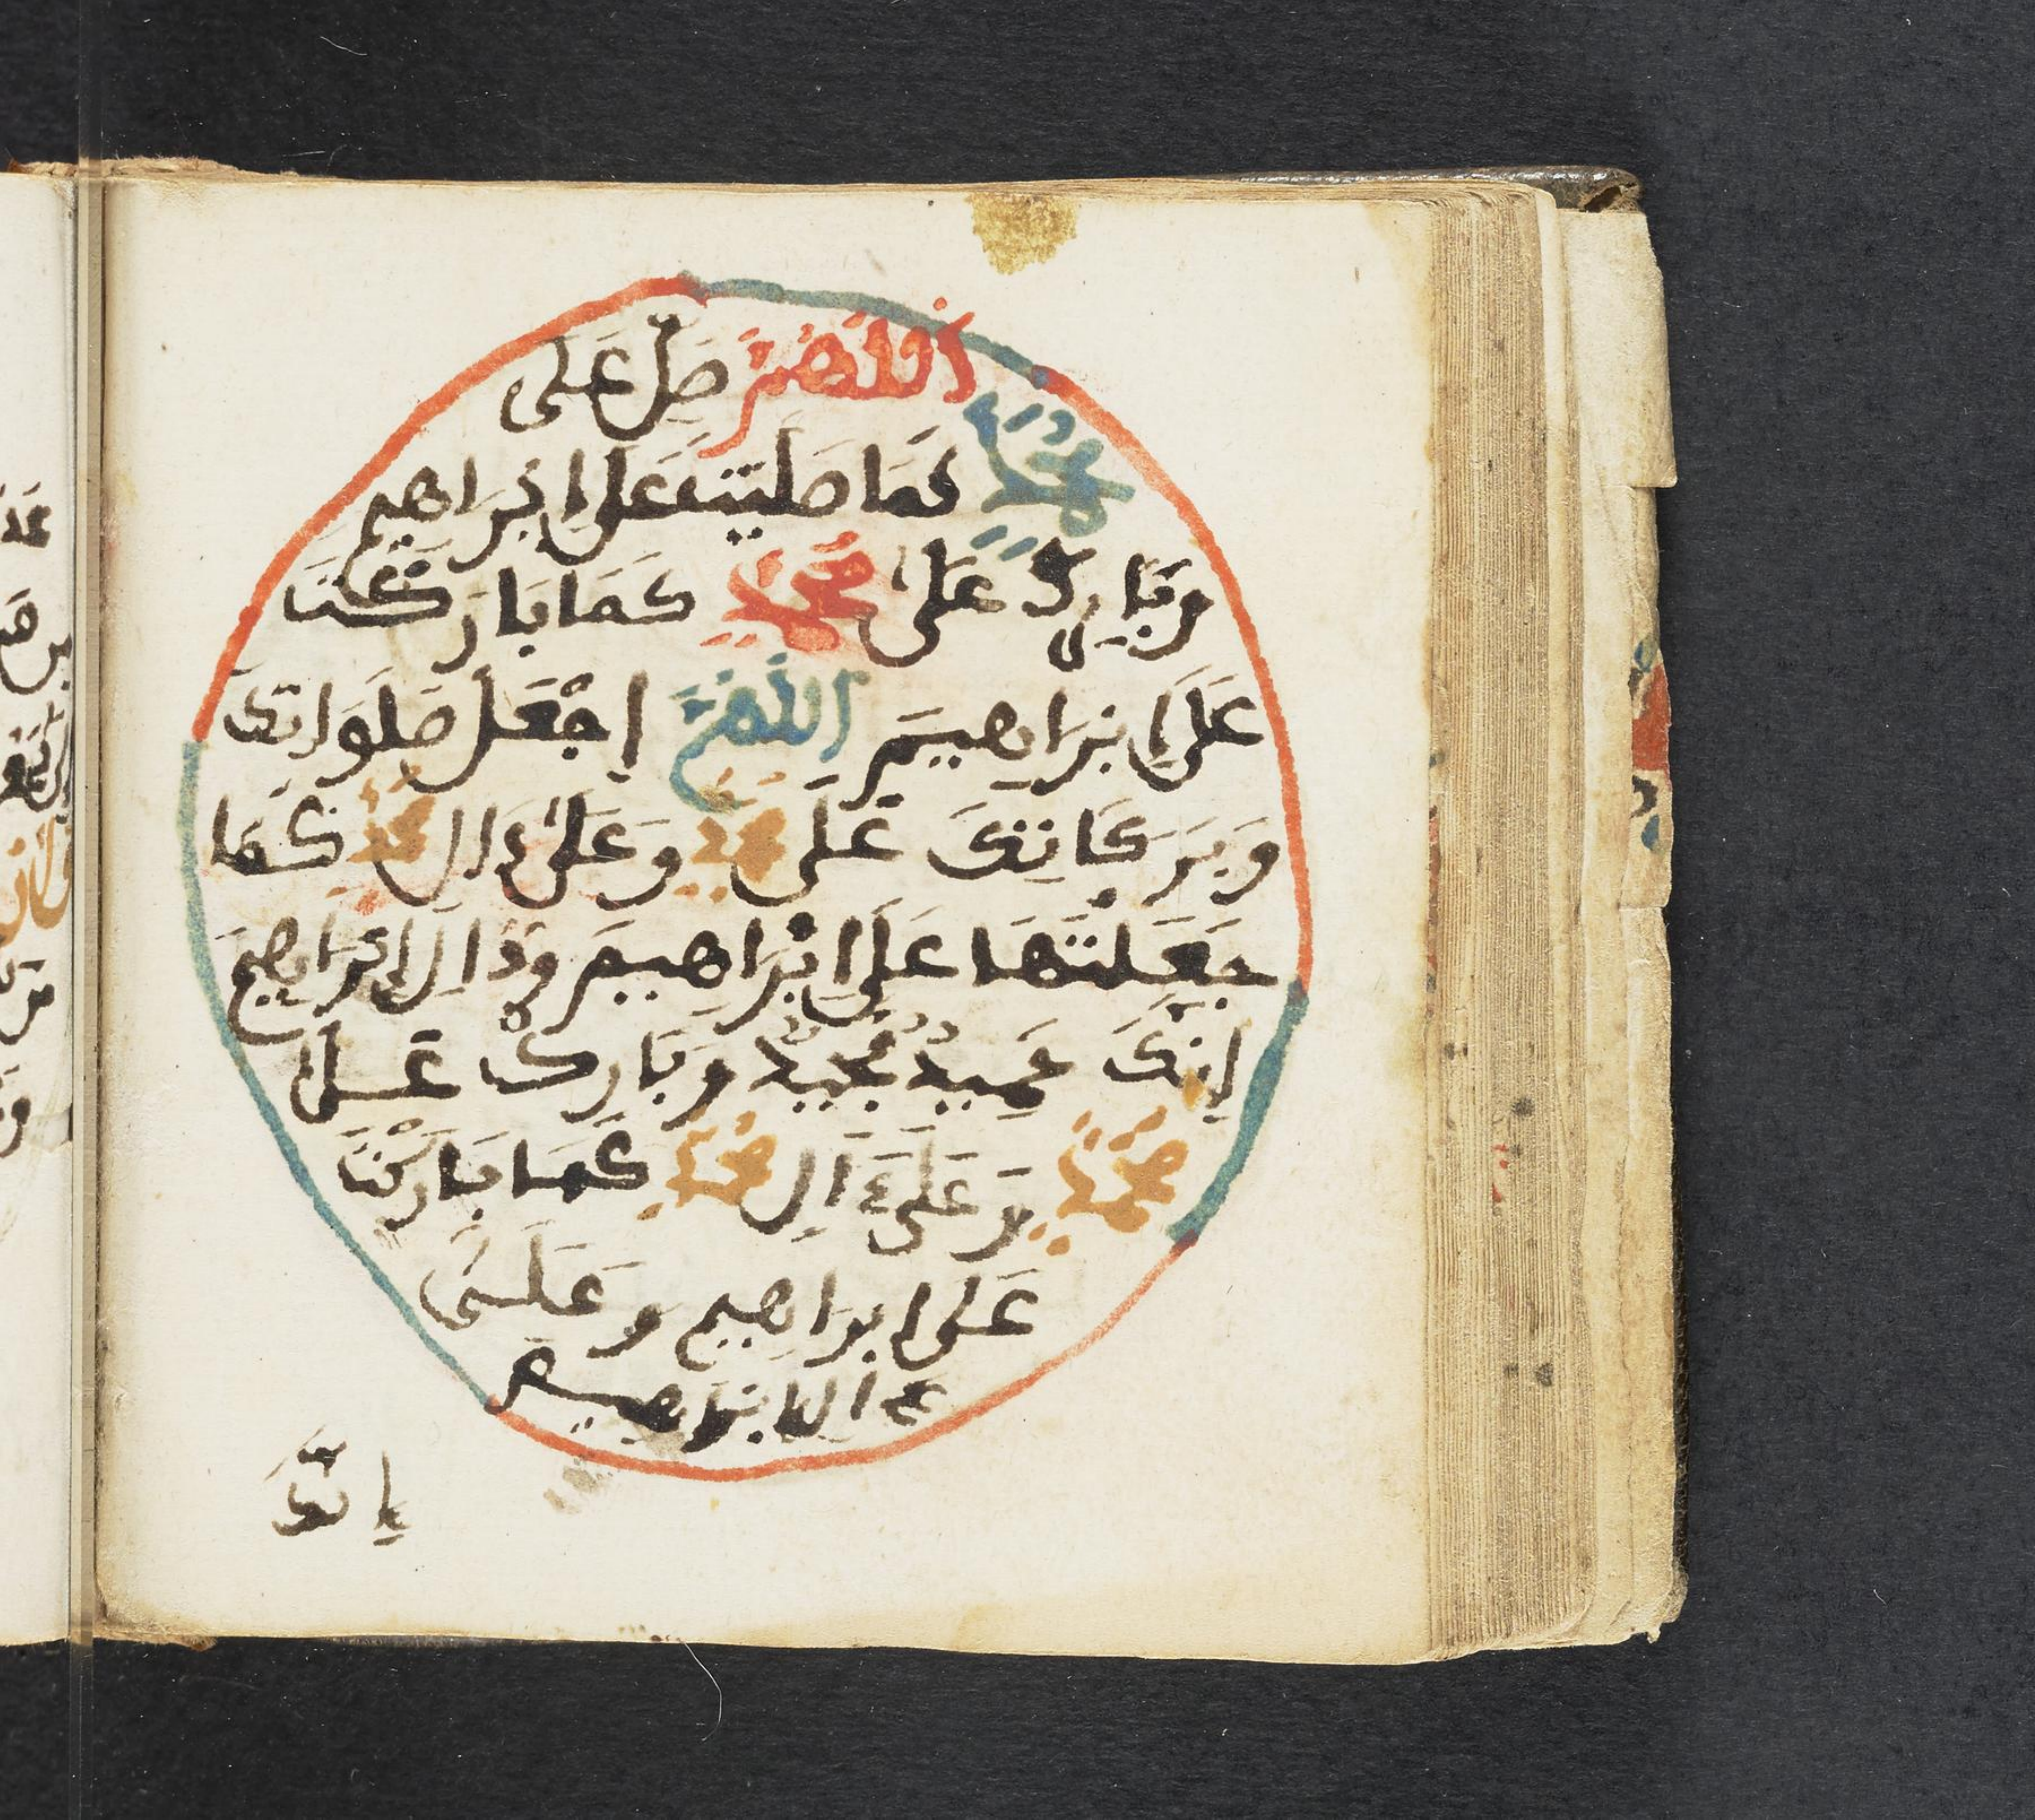 اَللَّهُمَّ صَلِّ عَلَى
مُحَمَّدٍ كَمَا صَلَيْتَ عَلَى اِبْرَاهِيم
وَبَارِكْ عَلَى مُحَمَّدٍ كَمَا بَارَكْتَ
عَلَى اِبْرَاهِيمَ اللَّهُمَّ اِجْعَلْ صَلَوَاتِكَ
وَبَرَكَاتِكَ عَلَى مُحَمَّدٍ وَعَلَى ءَالِ مُحَمَّدٍ كَمَا
جَعَلْتَهَا عَلَى اِبْرَاهِيمَ وَءَالِ اِبْرَاهِيمَ
اِنَّكَ حَمِيدٌ مَجِيدٌ وَبَارِكْ عَلَى
مُحَمَّدٍ وَعَلَى ءَالِ مُحَمَّدٍ كَمَا بَارَكْتَ
عَلَى اِبْرَاهِيم وَعَلَى
ءَالِ اِبْرَاهِيم
إِنَّكَ